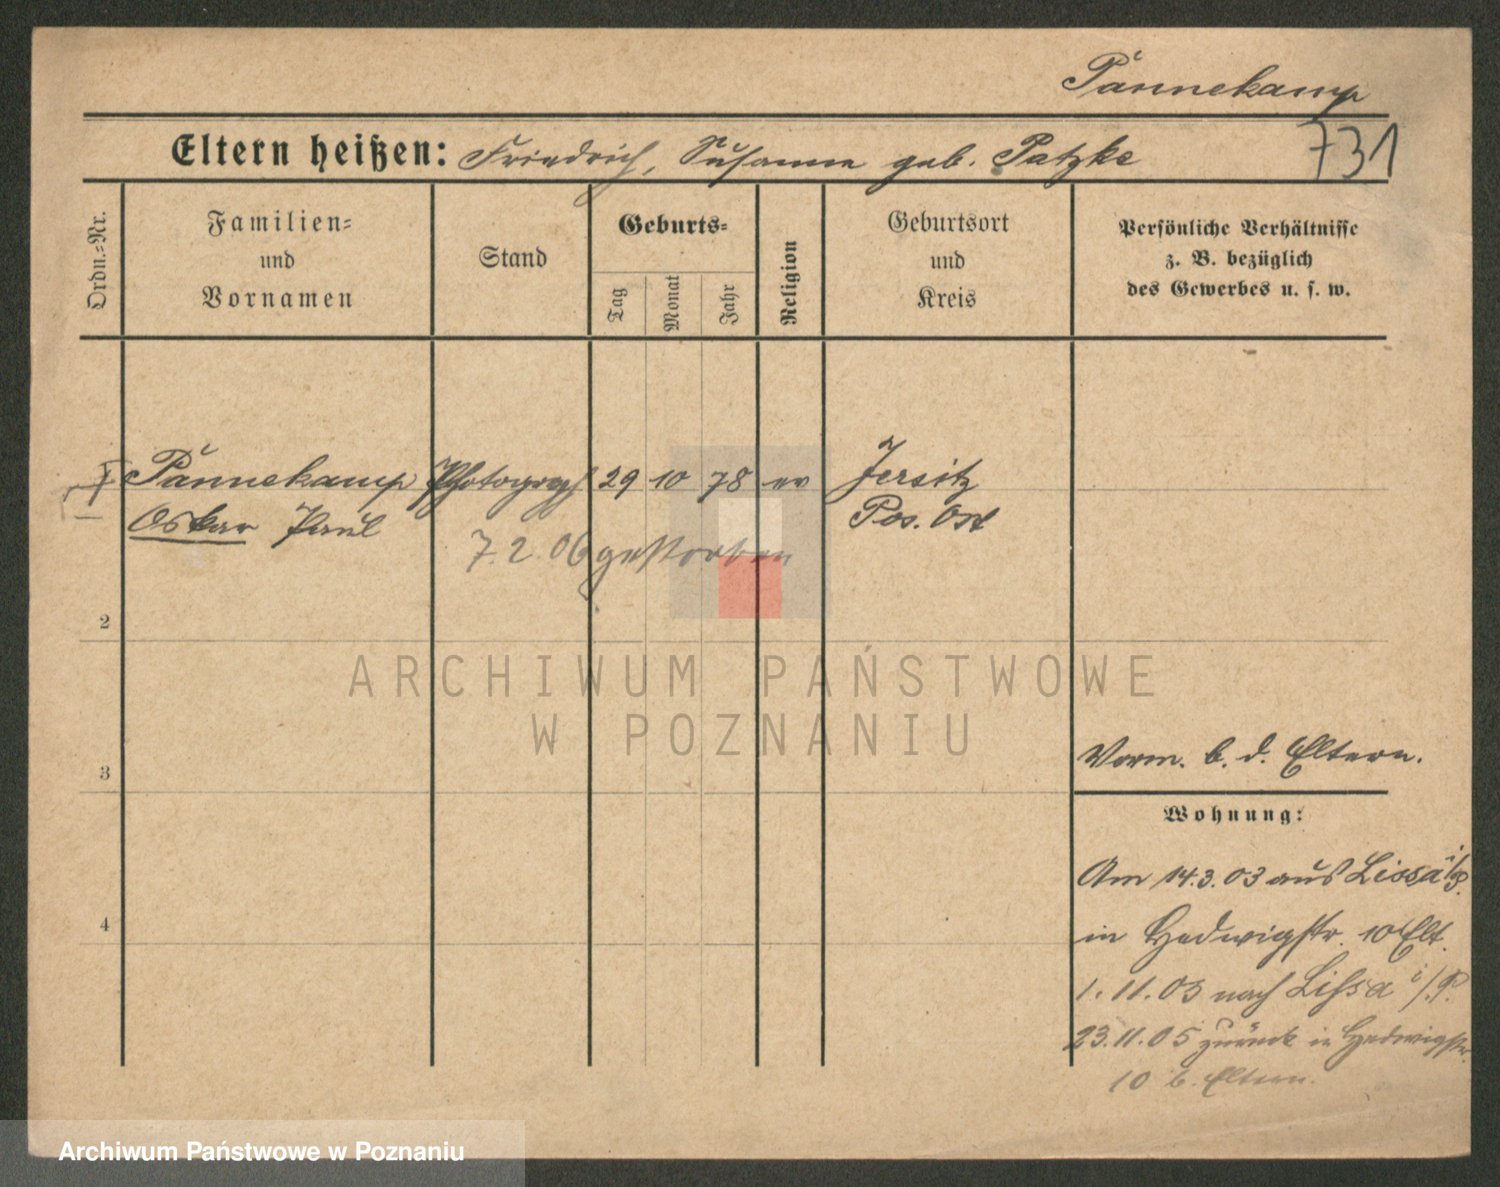 Pannekamp
Eltern heißen: Friedrich, Susanna geb. Patzke
731
Ordn.-Nr.
Familien-
und
Vornamen
Stand
Geburts-
Tag
Monat
Jahr
Religion
Geburtsort
und
Kreis
Persönliche Verhältnisse
z. B. bezüglich
des Gewerbes u. s. w.
1 Pannekamp Photograph 29 10 78 ev Jersitz
Oskar Paul Pos. Ost
7.2.06 gestorben
2
ARCHIWUM PAŃSTWOWE
W POZNANIU
Vorm. b. d. Eltern.
3
Wohnung:
Am 14.3.03 aus Lissa i/P.
4
in Hedwigstr. 10 Elt.
1.11.03 nach Lissa i/P.
23.11.05 zurück in Hedwigstr.
10 b. Eltern.
Archiwum Państwowe w Poznaniu